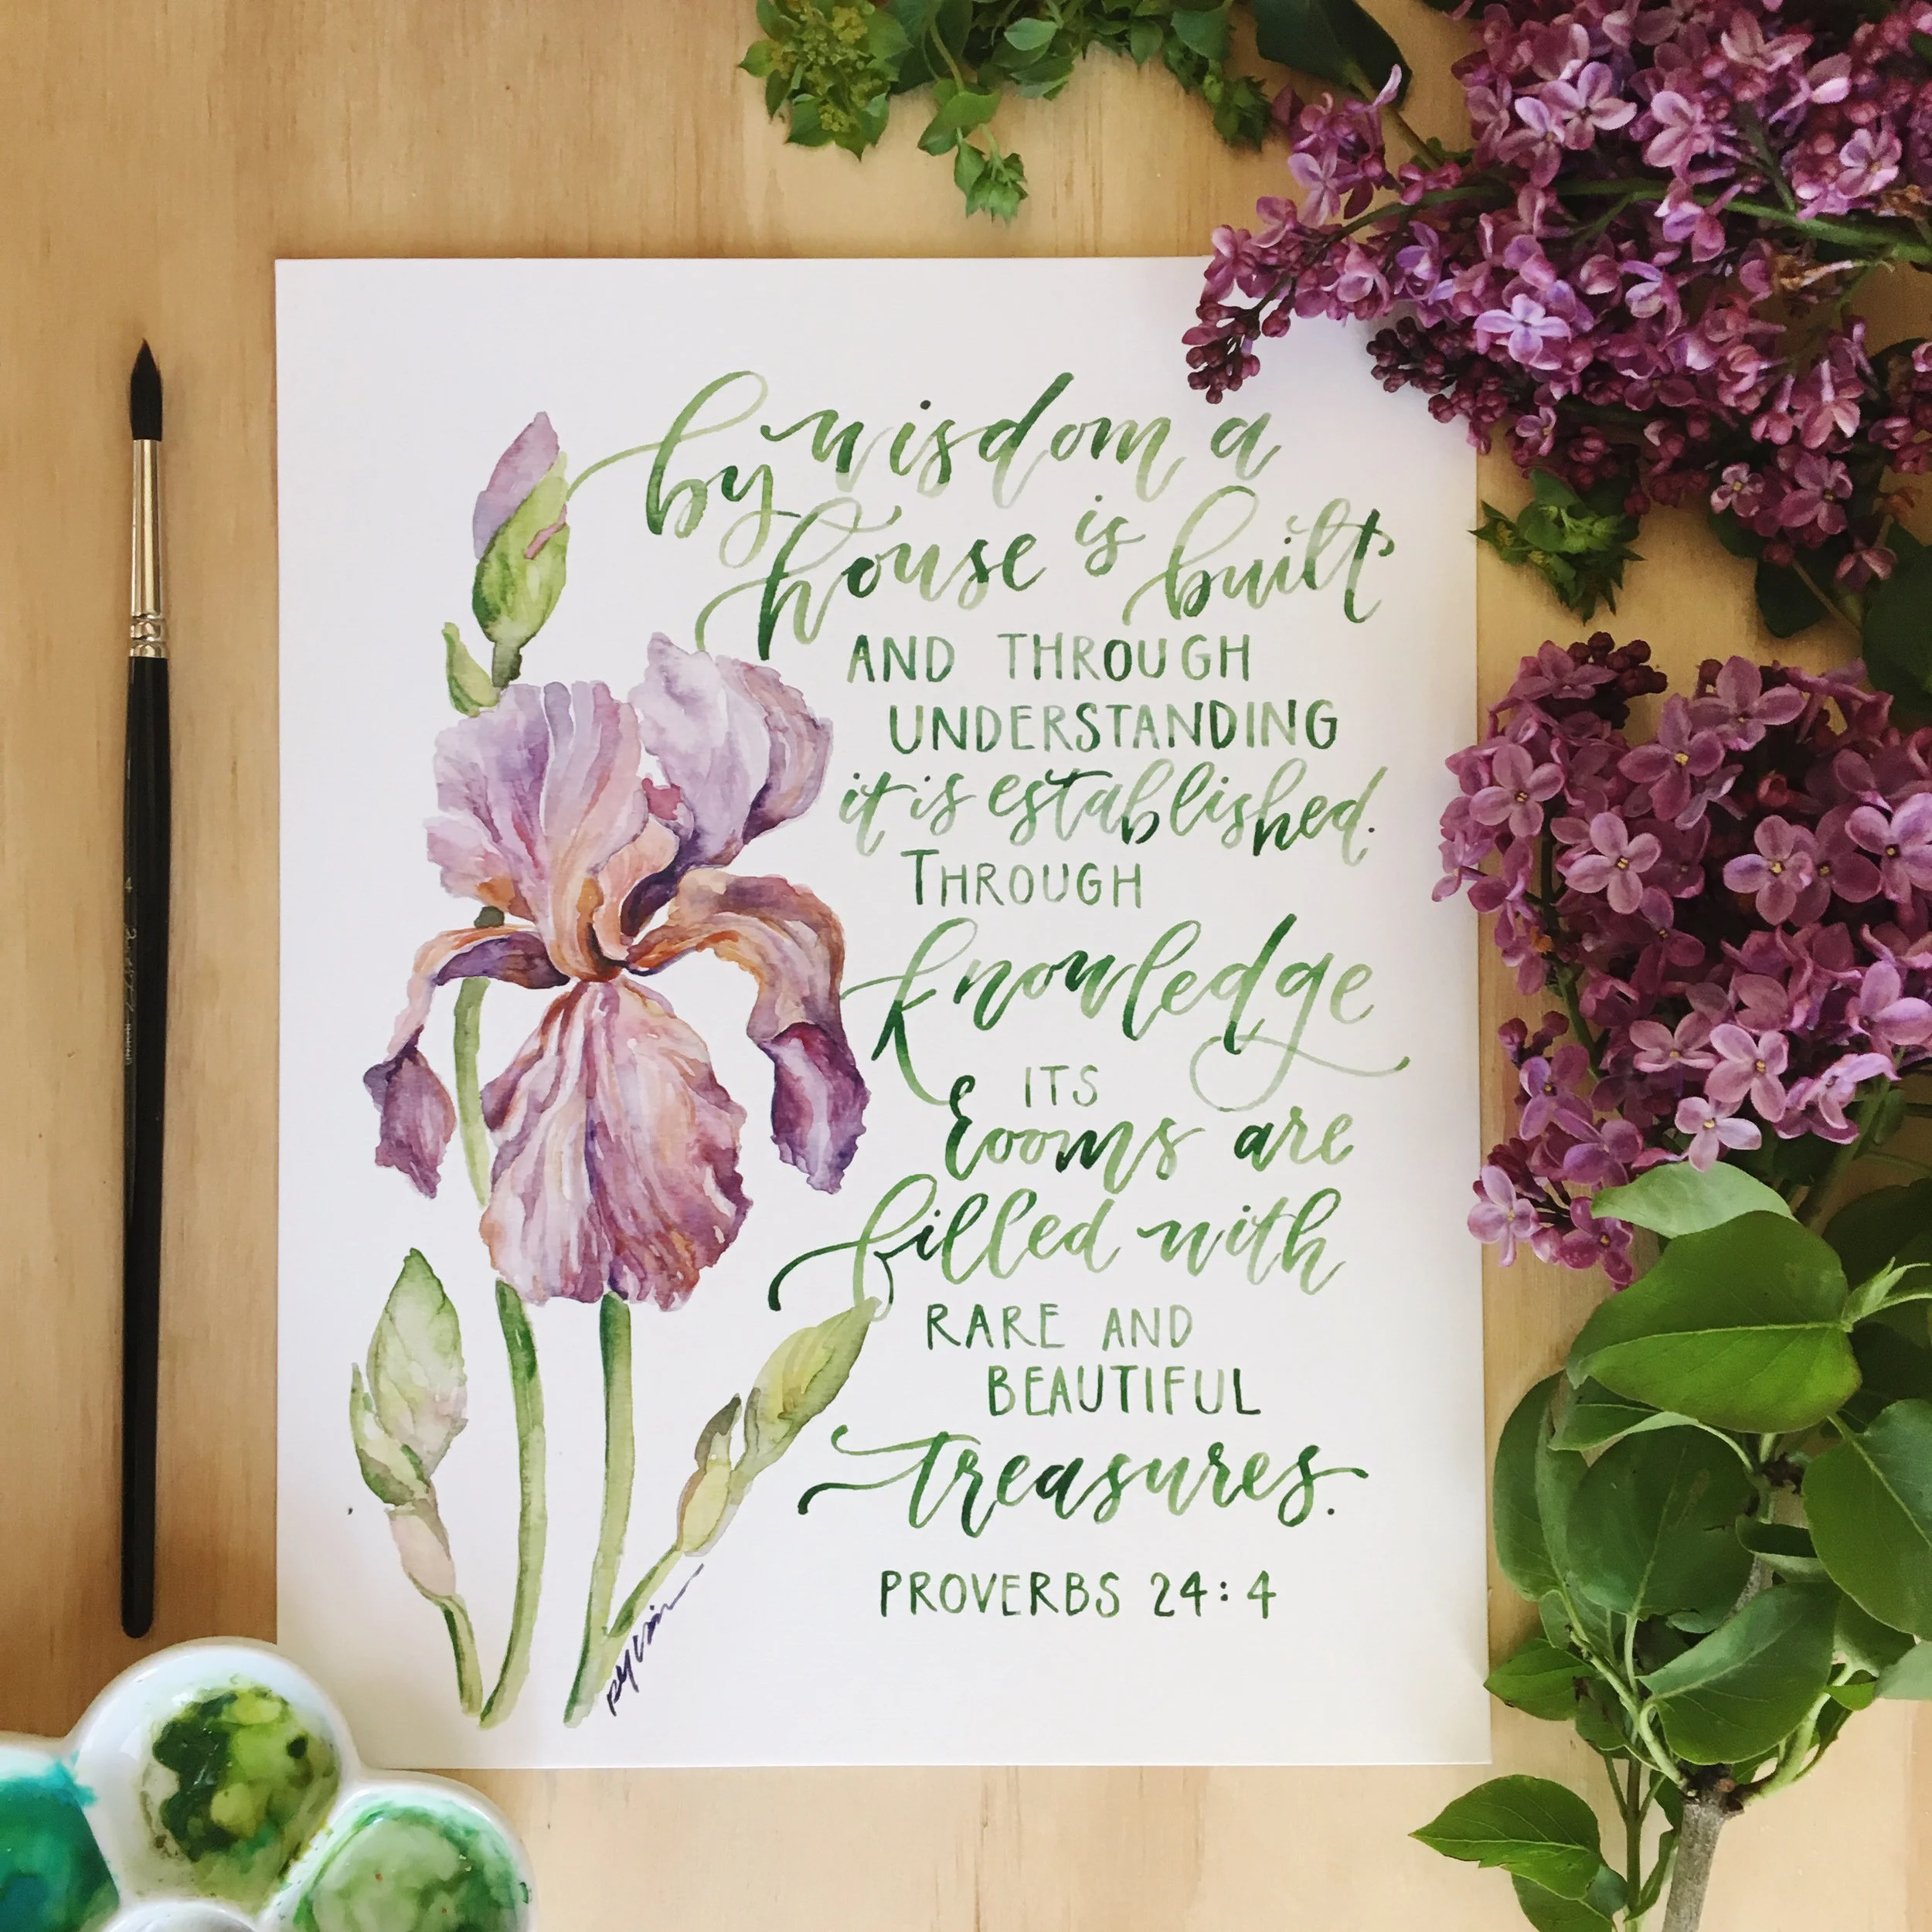 by wisdom a
house is built
AND THROUGH
UNDERSTANDING
it is established.
THROUGH
knowledge
ITS
rooms are
filled with
RARE AND
BEAUTIFUL
treasures.
PROVERBS 24:4
4